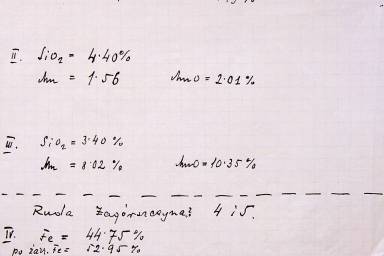 II. SiO₂ = 4.40%
Mn = 1.56 MnO = 2.01%
III. SiO₂ = 3.40 %
Mn = 8.02 % MnO = 10.35 %
Ruda 4 i 5.
IV. Fe = 44.75%
po Fe = 52.95%